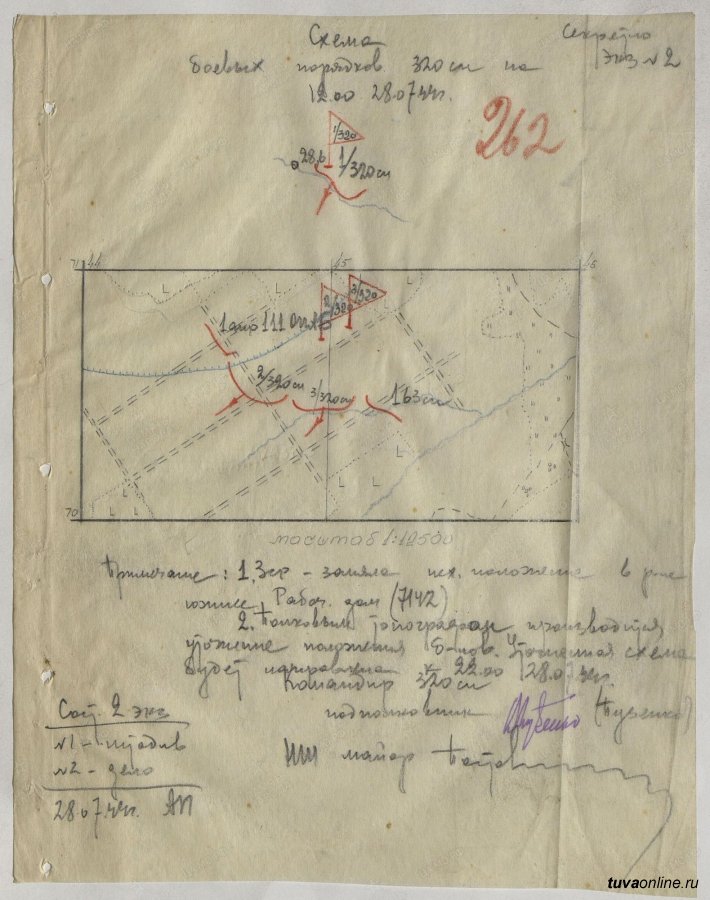 Схема
Секретно
боевых порядков 320 сп на
Экз №2
12.00 28.07.44г.
262
1/320
28,6
1/320 сп
71
44
45
46
2/320
3/320
2/320 сп
3/320 сп
163 сп
70
масштаб 1:12500
Примечание: 1. 3 ср - заняла исх. положение в р-не
южнее Рабоч. дом (7142)
2. Полковым топографом производится
положения б-нов. Уточненная схема
будет направлена к 22.00 28.07.44г.
Командир 320 сп
подполковник (Дубенко)
НШ майор
Сост. 2 экз
№1 - штадив
№2 - дело
28.07.44г. АП
tuvaonline.ru